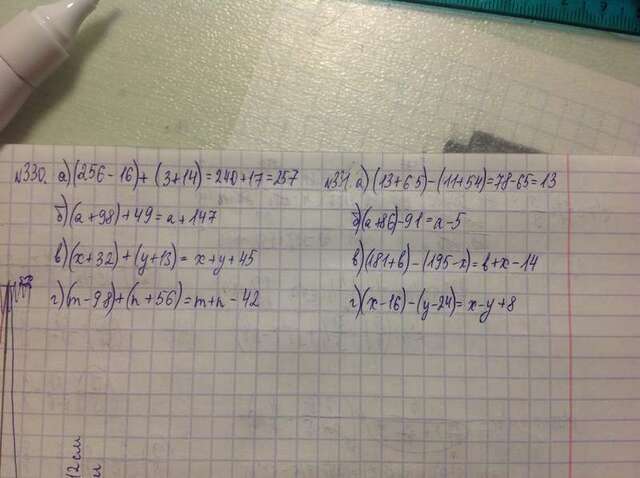 №330. а)(256-16)+(3+14)=240+17=257
б)(a+98)+49=a+147
в)(x+32)+(y+13)=x+y+45
г)(m-98)+(n+56)=m+n-42
№331. а)(13+65)-(11+54)=78-65=13
б)(a+86)-91=a-5
в)(181+b)-(195-x)=b+x-14
г)(x-16)-(y-24)=x-y+8
12 см